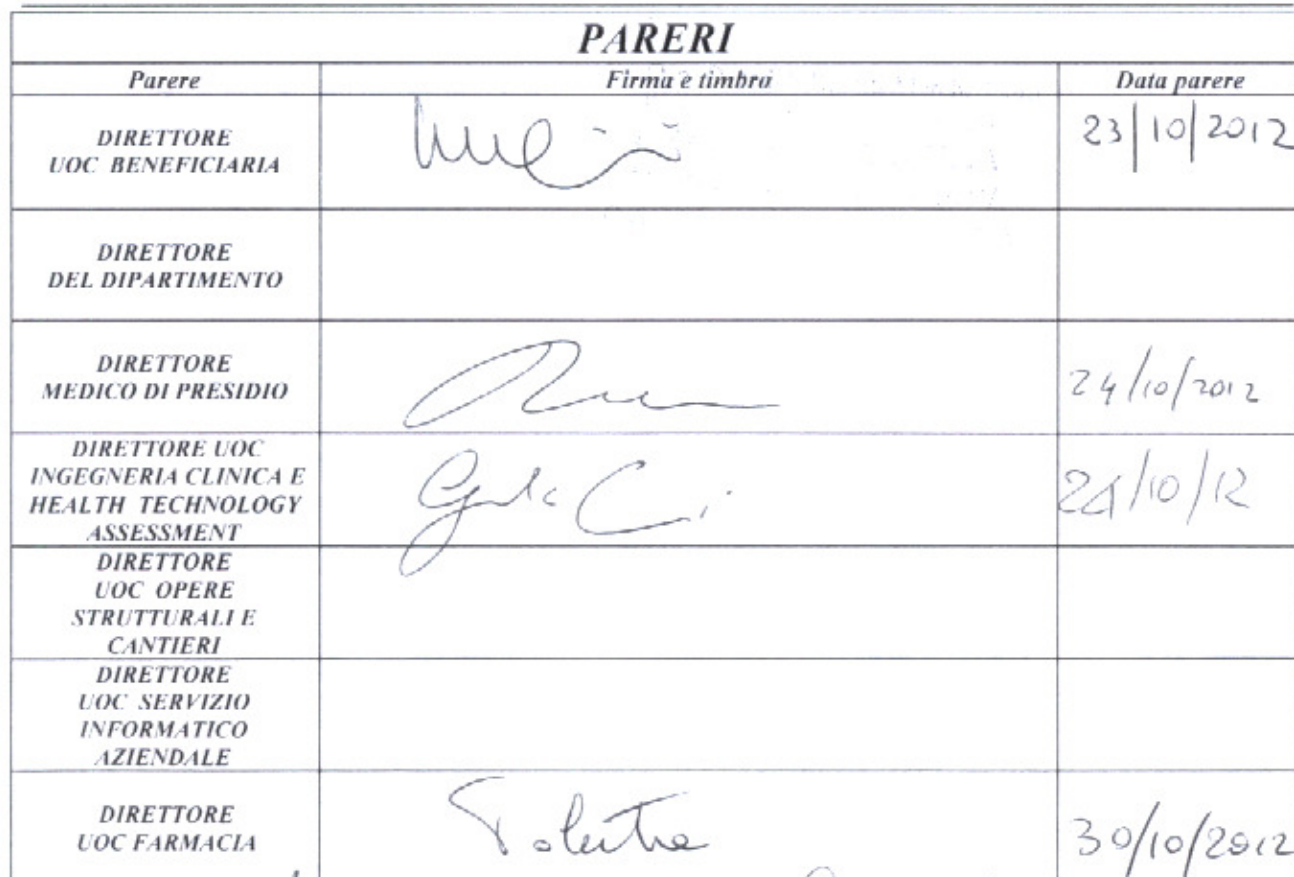 PARERI
Parere Firma e timbro Data parere
DIRETTORE
UOC BENEFICIARIA
23/10/2012
DIRETTORE
DEL DIPARTIMENTO
DIRETTORE
MEDICO DI PRESIDIO
24/10/2012
DIRETTORE UOC
INGEGNERIA CLINICA E
HEALTH TECHNOLOGY
ASSESSMENT
24/10/12
DIRETTORE
UOC OPERE
STRUTTURALI E
CANTIERI
DIRETTORE
UOC SERVIZIO
INFORMATICO
AZIENDALE
DIRETTORE
UOC FARMACIA
30/10/2012